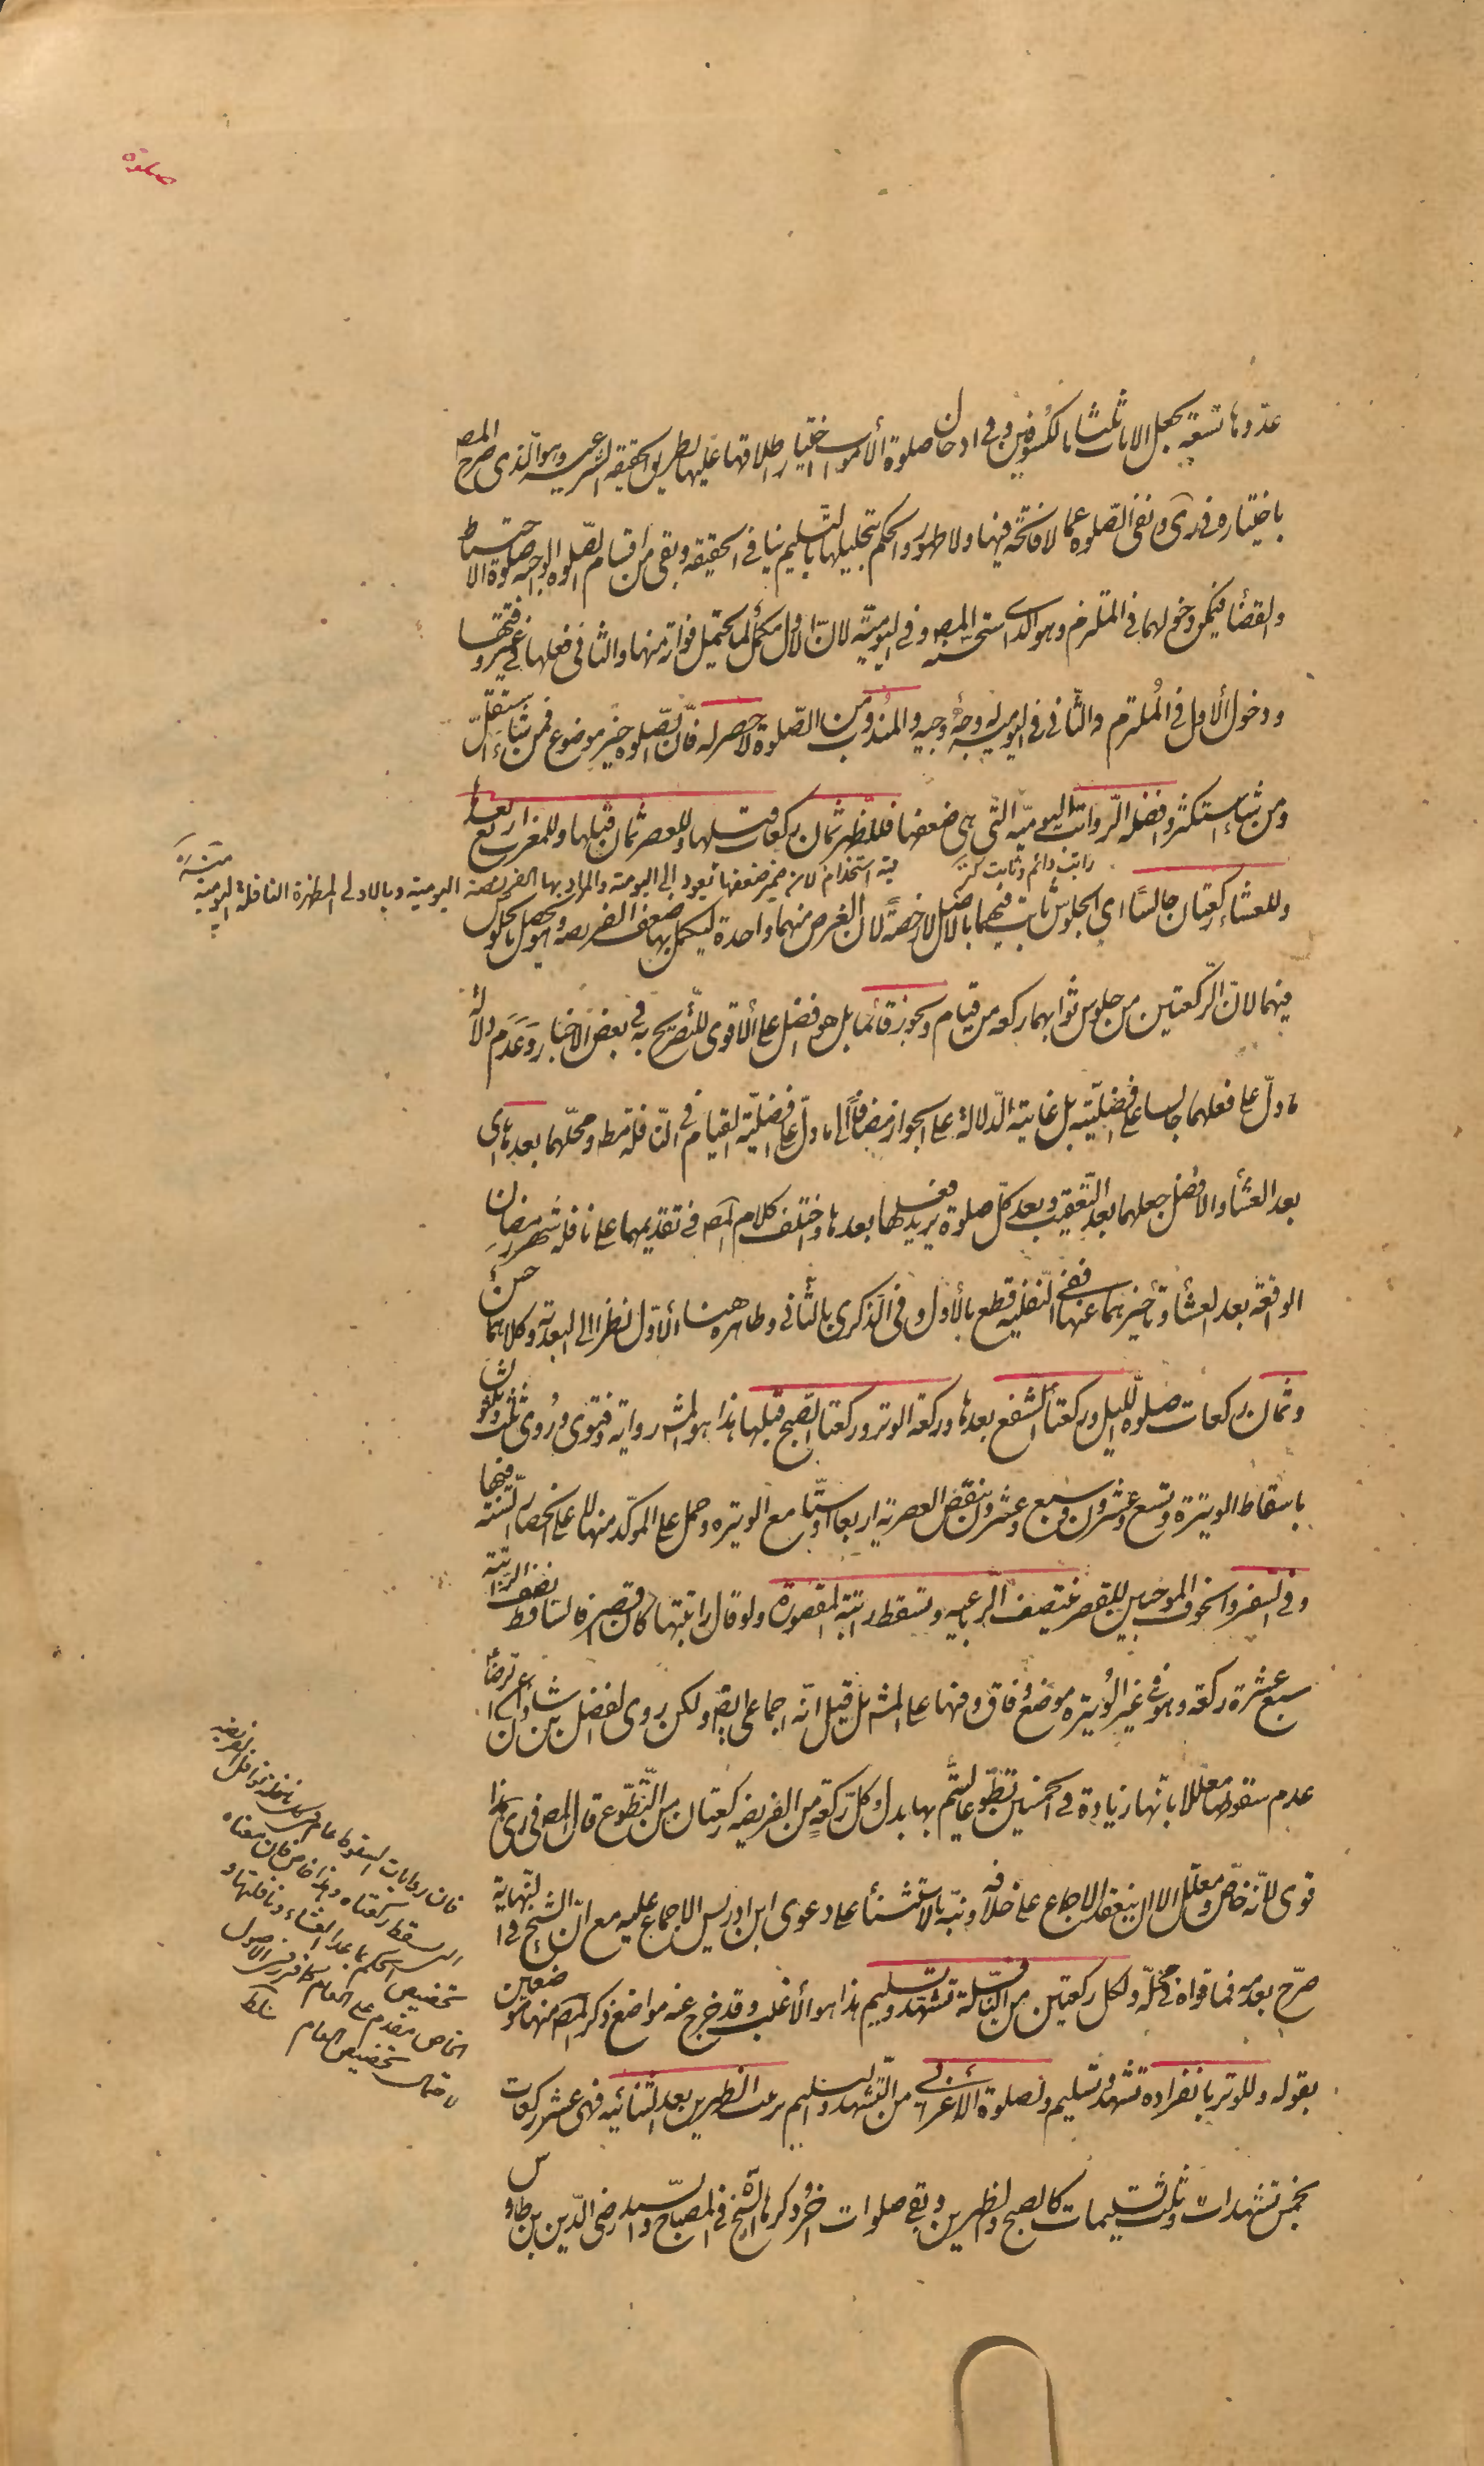 صلوة
عدّوها تسعة بجعل الايات ثلثا بالكسوفين وفي ادخال صلوة الأموات اختيار اطلاقها عليها بطريق الحقيقة الشرعية وهو الذى صرح المصـ
باختياره في رى ونفى الصّلوة عما لا فاتحة فيها ولا طهور والحكم بتحليلها بالتسليم ينافى الحقيقة وبقى من اقسام الصّلوة الواجبة صلوة الاحتياط
والقضاء فيمكن دخولهما فى الملتزم وهو الذى استحسنه المصـ وفى اليوميّة لانّ الاول مكمّل لما يحتمل فواته منها والثانى فعلها فى غير وقتها
ودخول الاول فى الملتزم والثّانى فى اليومية وله وجه وجيه والمندوب من الصّلوة لا حصر له فانّ الصّلوة خير موضوع فمن شاء استقلّ
ومن شاء استكثر وافضله الرّواتب اليوميّة التى هى ضعفها فللظهر ثمان ركعات قبلها وللعصر ثمان قبلها وللمغرب اربع بعدها
راتب دائم وثابت كنز
فيه استخدام لان ضمير ضعفها يعود الى اليومية والمراد بها الفريضة اليومية وبالاولى المظهرة النافلة اليومية منه ره
وللعشاء ركعتان جالسًا اى الجلوس ثابت فيهما بالاصل لا رخصة لان الغرض منهما واحدة ليكمل بها ضعف الفريضه وهو يحصل بالجلوس
فيهما لانّ الرّكعتين من جلوس ثوابهما ركعة من قيام ويجوز قائما بل هو افضل على الأقوى للتّصريح به فى بعض الاخبار وعدم دلالة
ما دلّ على فعلهما جالسا على افضليته بل غايته الدّلالة على الجواز مضافًا الى ما دلّ على افضليّة القيام فى النّافلة مطـ ومحلّهما بعدها اى
بعد العشاء والافضل جعلهما بعد التّعقيب وبعد كلّ صلوة يريد فعلها بعدها واختلف كلام المصـ فى تقديمهما على نافلة شهر رمضان
الواقعة بعد العشاء وتأخيرهما عنها ففى النّفلية قطع بالأول وفى الذكرى بالثّانى وظاهره هنا الأوّل نظرا الى البعدية وكلاهما حسن
وثمان ركعات صلوة اللّيل وركعتا الشفع بعدها وركعة الوتر وركعتا الصبح قبلها هذا هو المشـ رواية وفتوى ورُوى ثلث وثلثون
باسقاط الوتيرة وتسع وعشرون وسبع وعشرون بنقص العصرية اربعا او ستّا مع الوتيره وحمل على المؤكّد منها لا على انحصار السّنة فيها
وفى السفر والخوف الموجبين للقصر تنتصف الرّباعيه وتسقط راتبة المقصورة ولو قال راتبتها كان اقصر فالساقط نصف الرّاتبة
سبع عشرة ركعة وهو فى غير الوُتيره موضع وفاق وفيها على المشـ بل قيل انّه اجماعى ايضا ولكن روى الفضل بن شاذان عن الرضا ع
عدم سقوطها معللا بانّها زيادة فى الخمسين تطوّعا ليتمّ بها بدل كلّ ركعةٍ من الفريضه ركعتان من التّطوّع قال المصـ فى رى وهذا
قوى لانّه خاصّ ومعلّل الا ان ينعقد الاجماع على خلافه ونبّه بالاستثناء على دعوى ابن ادريس الاجماع عليه مع انّ الشيخ فى النهاية
صرّح بعدمه فما قواه فى محلّه ولكل ركعتين من النّافلة تشهد وتسليم هذا هو الأغلب وقد خرج عنه مواضع ذكر المصـ منها موضعين
بقوله وللوتر بانفراده تشهد وتسليم ولصلوة الأعرابى من التّشهّد والتسليم ترتيب الظهرين بعد الثنائيّة فهى عشر ركعات
بخمس تشهدات وثلث تسليمات كالصبح والظهرين وبقى صلوات اخر ذكرها الشيخ فى المصباح والسيّد رضى الدّين بن طاوس
فان روايات السقوط عام فى كل نافلة نوافل الفريضه
السقط ركعتاه وهذا خاص فان معناه
تخصيص الحكم بما عدا العشاء ونافلتها و
الخاص مقدم على العام كما قرر فى الاصول
تخصيص العام